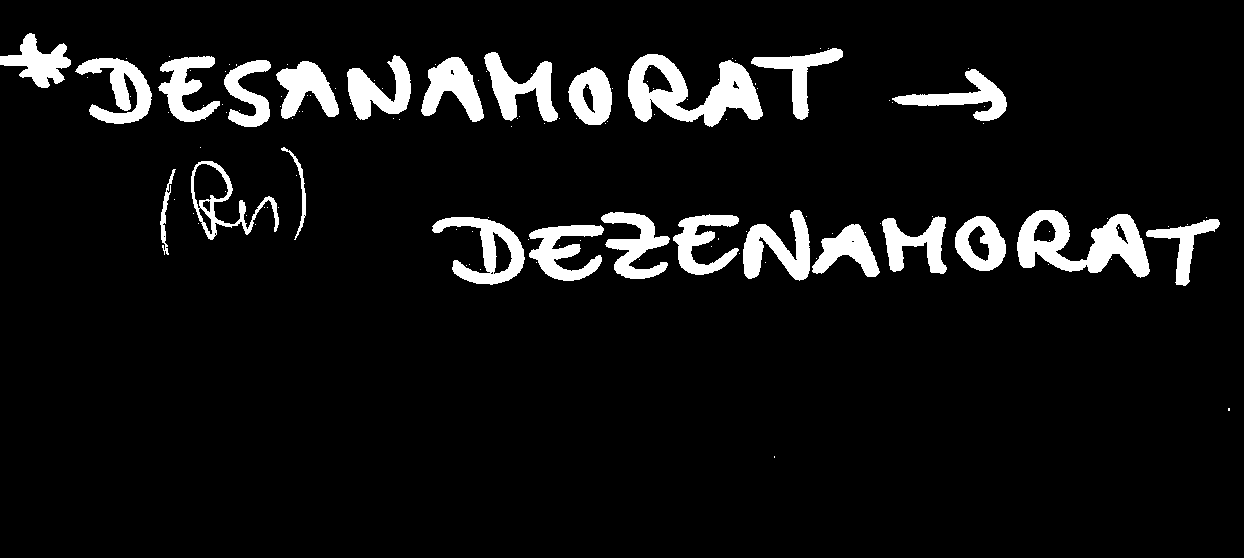 *DESANAMORAT →
(Rn)
DEZENAMORAT